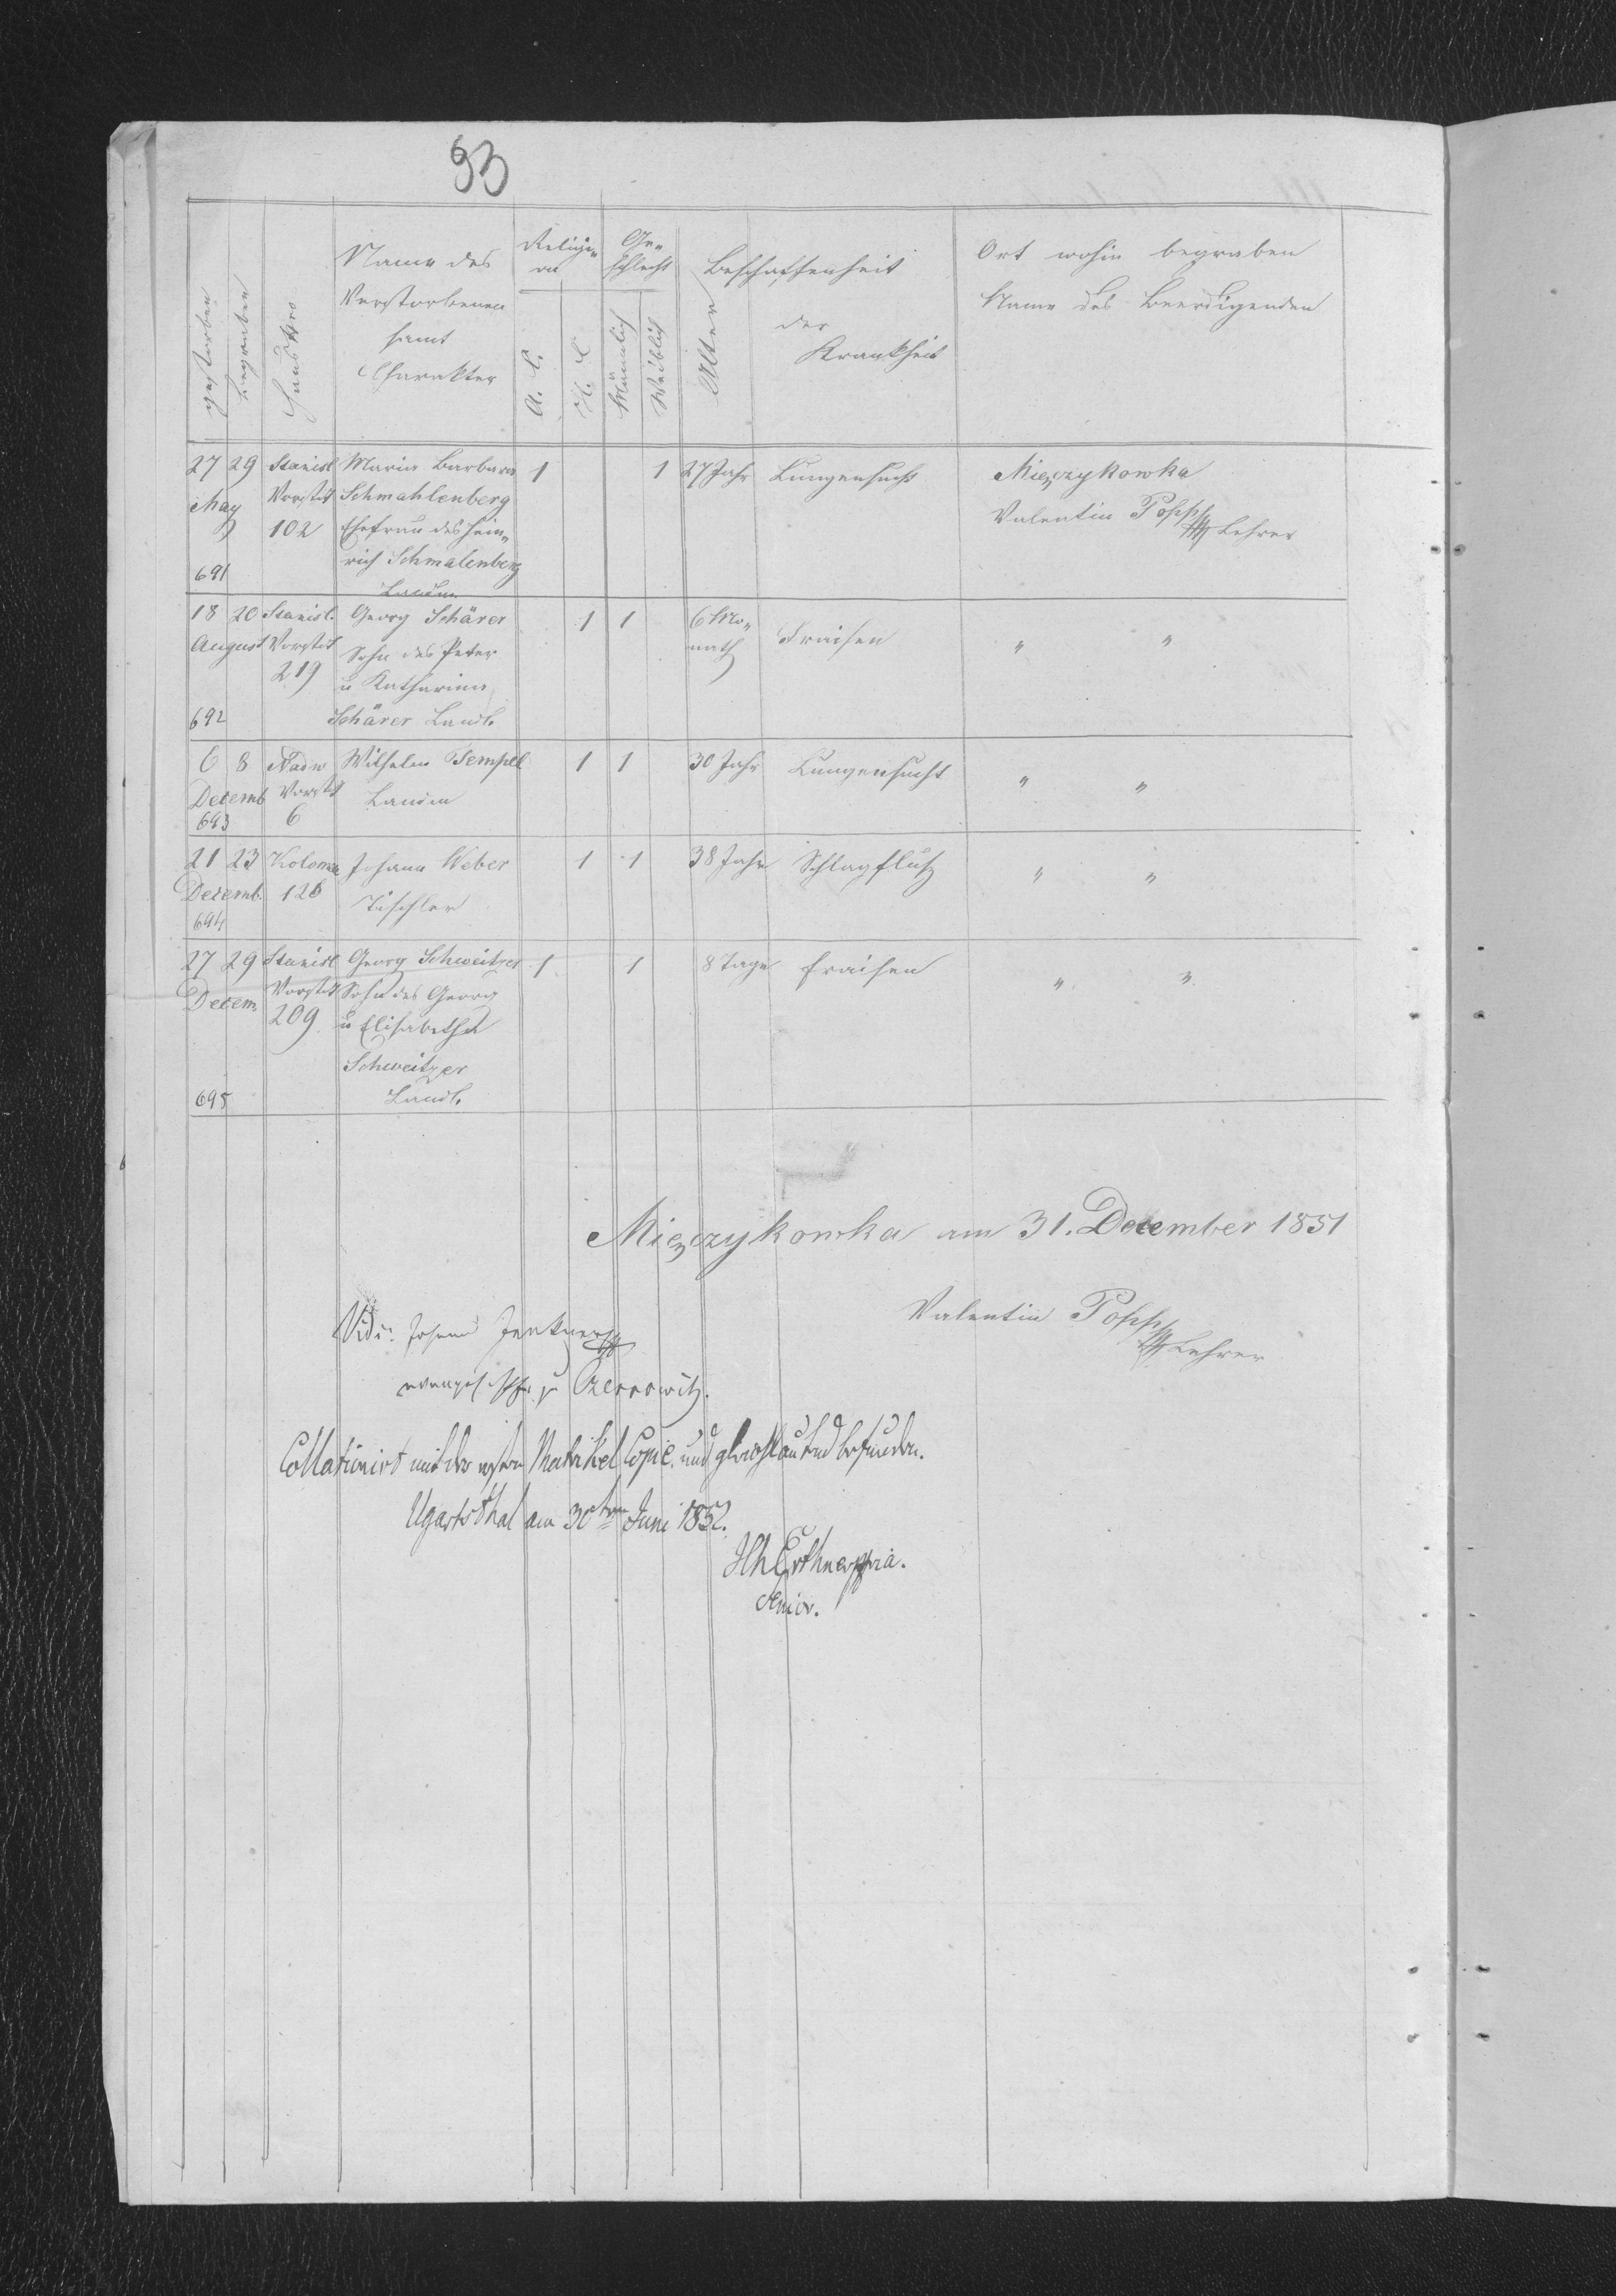 93
gestorben
begraben
Haus Nro
Name des
Verstorbenen
samt
Charakter
Religi„
on
A. C.
H. C.
Ge„
schlecht
Männlich
Weiblich
Alter
Beschaffenheit
der
Krankheit
Ort wohin begraben
Name des Beerdigenden
27 29 Stanisl Maria Barbara 1 1 27 Jahr Lungensucht Mięczykowka
May Vorstdt Schmahlenberg Valentin Popp Lehrer
102 Ehefrau des Hein„
rich Schmalenberg
691
Landm
18 20 Stanisl. Georg Schärer 1 1 6 Mo„ Fraisen " "
August Vorstdt Sohn des Peter nath
219 u Katharina
692 Schärer Landl.
6 8 Nadw Wilhelm Tempel 1 1 30 Jahr Lungensucht " "
Decemb Vorstdt Landm
693 6
21 23 Kolomea Johann Weber 1 1 38 Jahr Schlagfluß " "
Decemb. 126 Tischler
694
27 29 Stanisl Georg Schweitzer 1 1 8 Tage Fraisen " "
Decem. Vorstdt Sohn des Georg
209 u Elisabetha
Schweitzer
695 Landl.
Mięczykowka am 31. December 1851
Valentin Popp
Lehrer
Vidi: Johann Jenkner
Czernowitz.
Collationirt mit der ersten Matrikel Copie und gleichlautend befunden.
Ugartsthal am 30ten Juni 1852.
Senior.